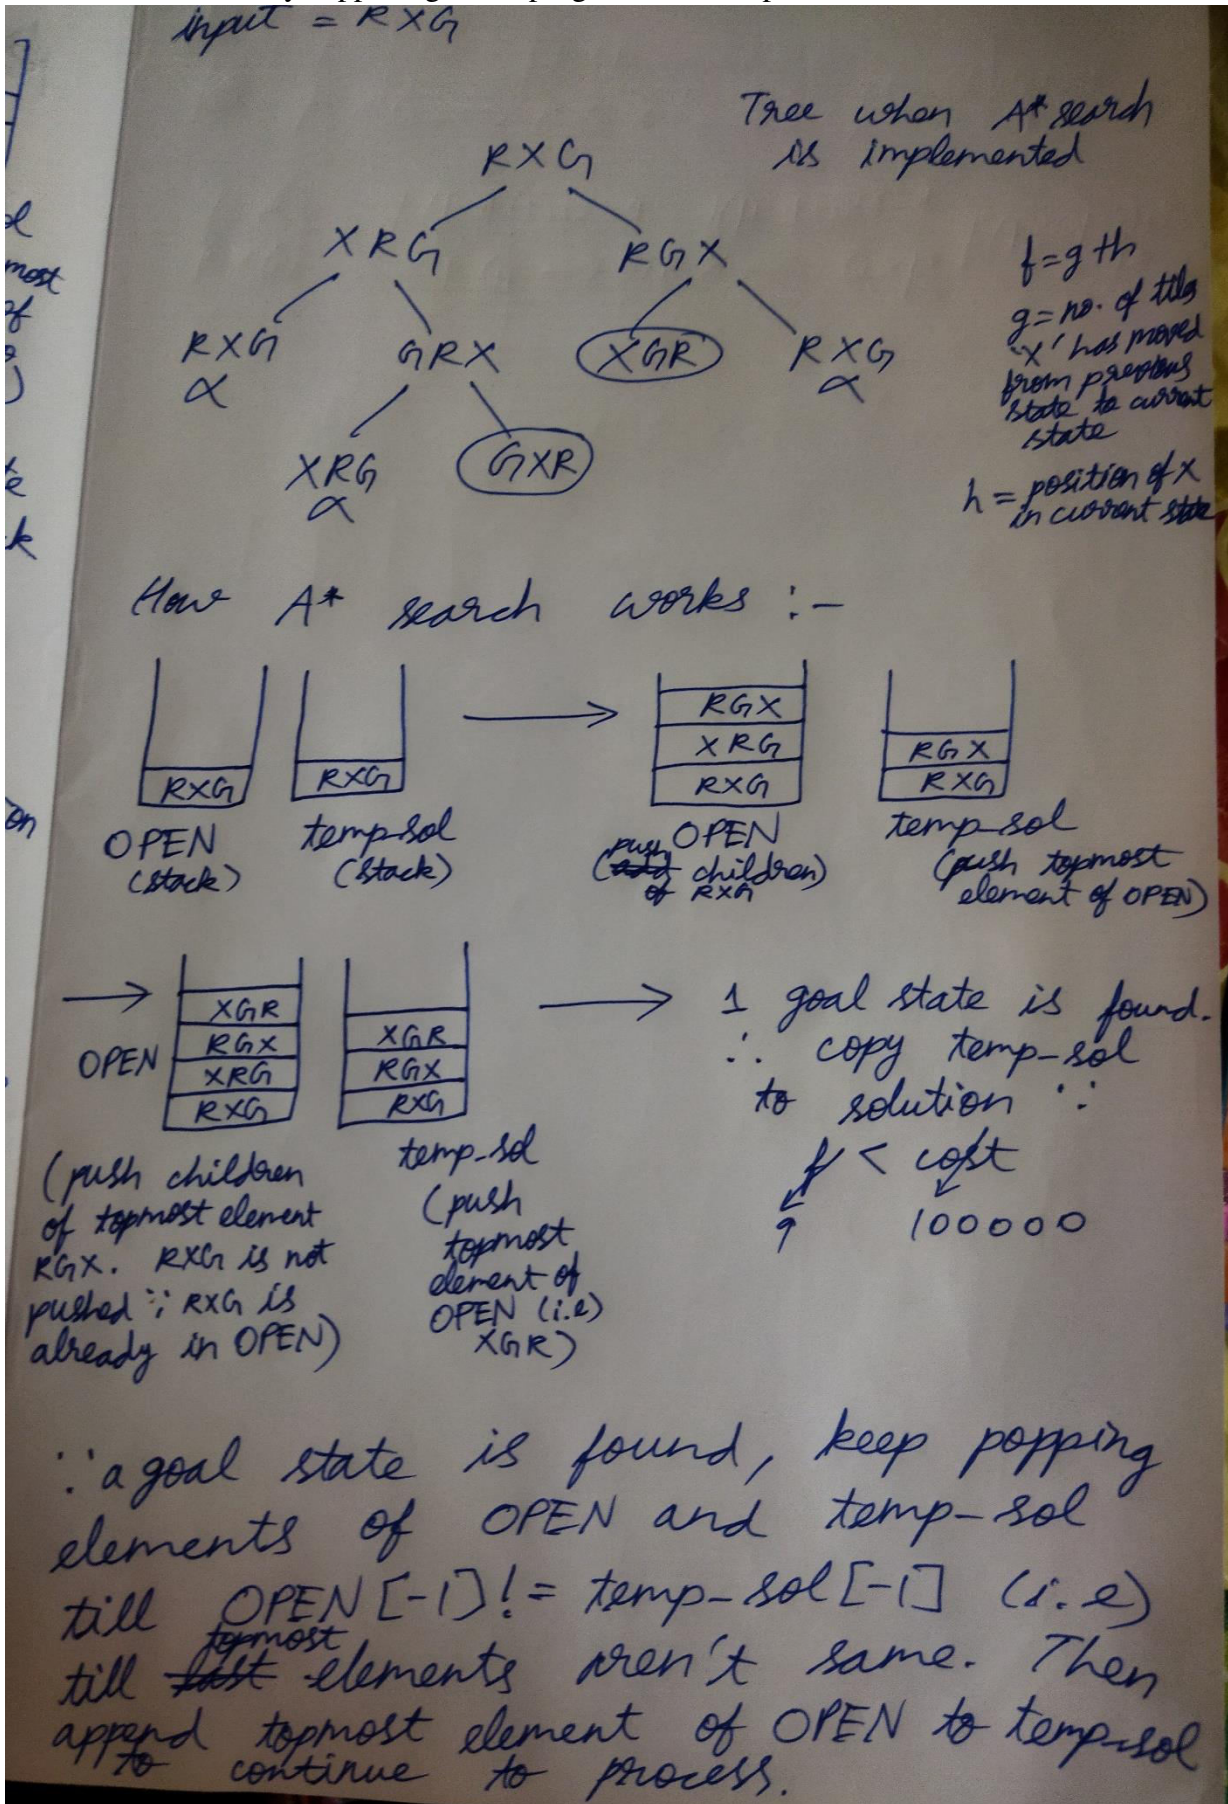 input = RXG
Tree when A* search
is implemented
RXG
XRG RGX
RXG GRX XGR RXG
XRG GXR
f=g+h
g= no. of tiles
'X' has moved
from previous
state to current
state
h = position of X
in current state
How A* search works :-
RXG RXG
OPEN temp-sol
(stack) (stack)
RGX
XRG
RXG
OPEN
(push children)
of RXG
RGX
RXG
temp_sol
(push topmost
element of OPEN)
XGR
RGX
XRG
RXG
OPEN
(push children
of topmost element
RGX. RXG is not
pushed ∵ RXG is
already in OPEN)
XGR
RGX
RXG
temp-sol
(push
topmost
element of
OPEN (i.e)
XGR)
1 goal state is found.
∴ copy temp-sol
to solution ∵
f < cost
9 100000
∵ a goal state is found, keep popping
elements of OPEN and temp-sol
till OPEN[-1]!= temp-sol[-1] (i.e)
till topmost elements aren't same. Then
append topmost element of OPEN to temp-sol
to continue to process.
l
most
of
k
on